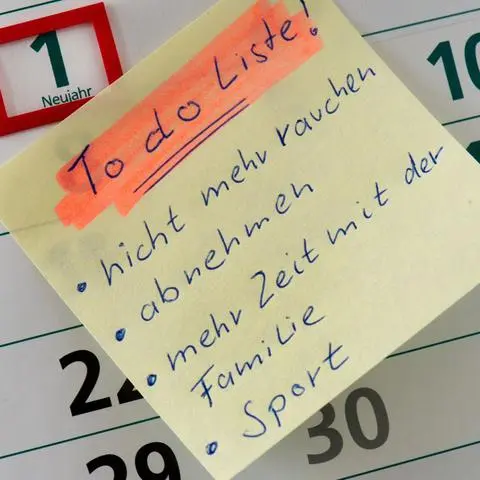 1
Neujahr
10
To do Liste!
• nicht mehr rauchen
• abnehmen
• mehr Zeit mit der
Familie
• Sport
22
29
30